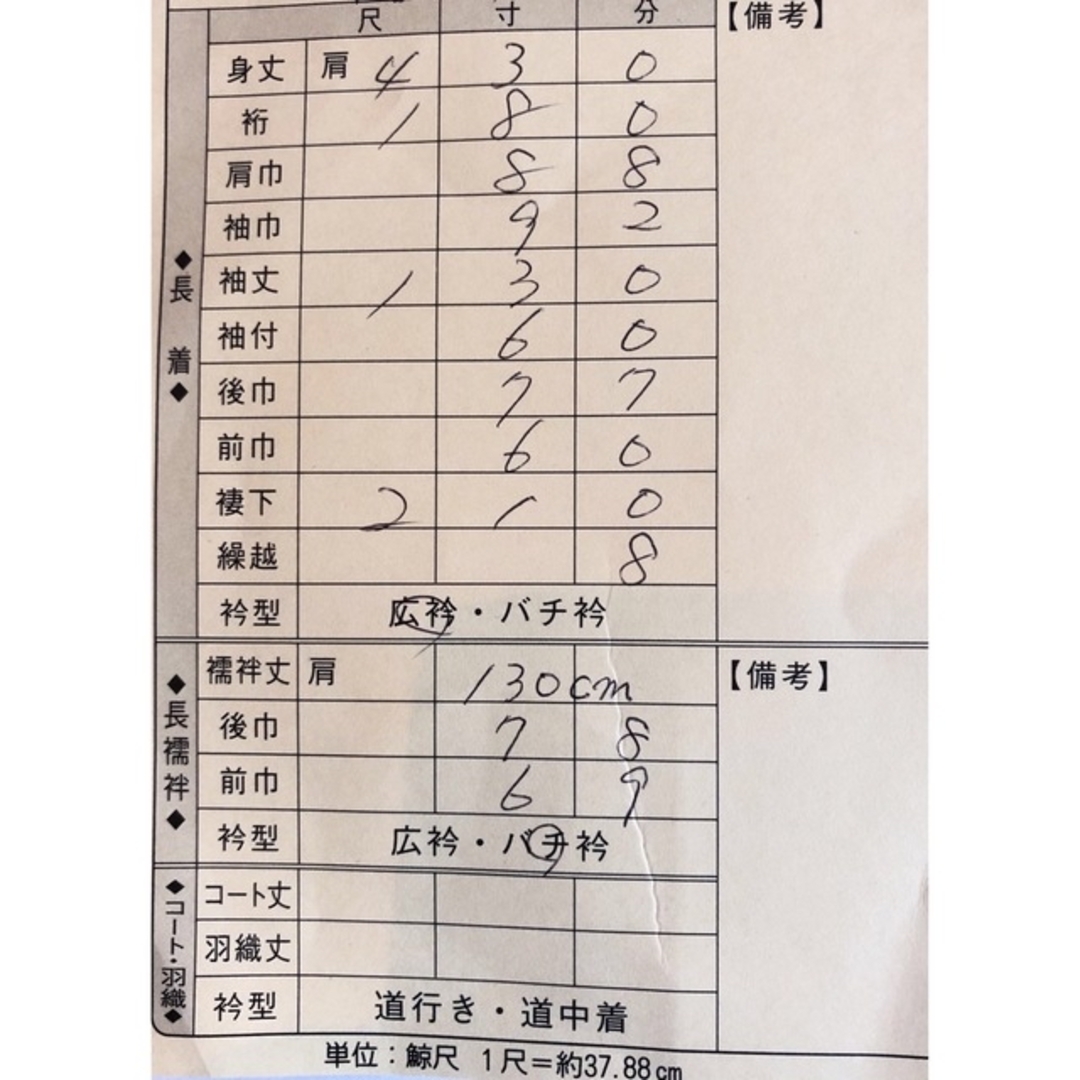 尺 寸 分 【備考】
◆長着◆
身丈 肩 4 3 0
裄 1 8 0
肩巾 8 8
袖巾 9 2
袖丈 1 3 0
袖付 6 0
後巾 7 7
前巾 6 0
褄下 2 1 0
繰越 8
衿型 広衿・バチ衿
◆長襦袢◆
襦袢丈 肩 130cm 【備考】
後巾 7 8
前巾 6 9
衿型 広衿・バチ衿
◆コート・羽織◆
コート丈
羽織丈
衿型 道行き・道中着
単位：鯨尺 1尺＝約37.88cm